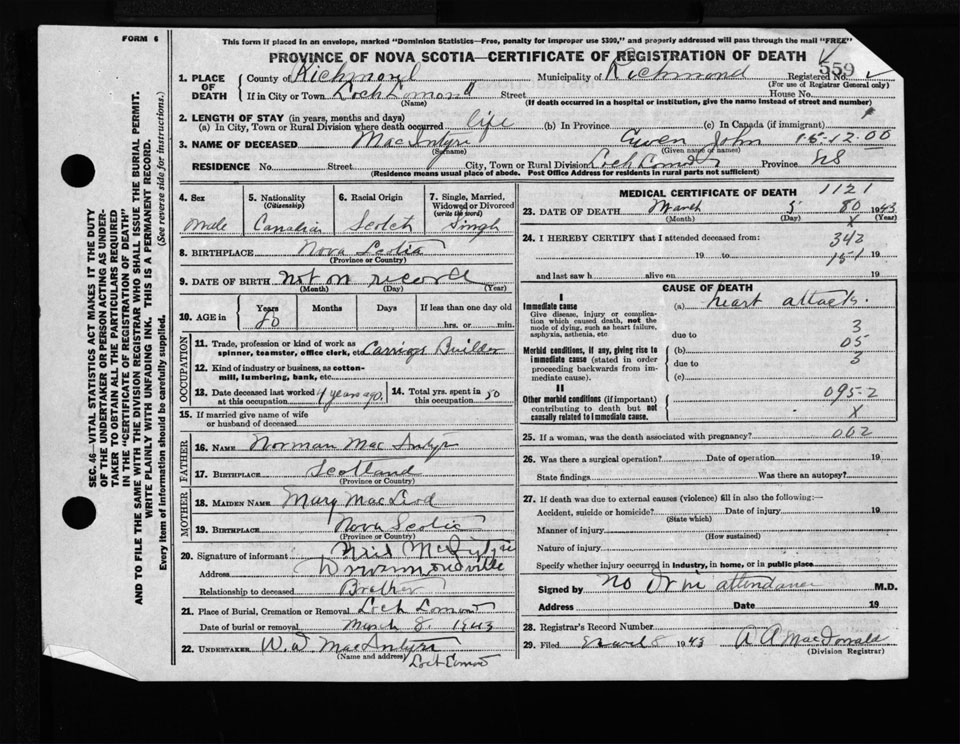 FORM 6
This form if placed in an envelope, marked "Dominion Statistics—Free, penalty for improper use $300," and properly addressed will pass through the mail "FREE"
PROVINCE OF NOVA SCOTIA—CERTIFICATE OF REGISTRATION OF DEATH
559
1. PLACE OF DEATH County of Richmond Municipality of Richmond Registered No.
(For use of Registrar General only)
If in City or Town Loch Lomond Street House No.
(Name) (If death occurred in a hospital or institution, give the name instead of street and number)
2. LENGTH OF STAY (in years, months and days)
(a) In City, Town or Rural Division where death occurred life (b) In Province (c) In Canada (if immigrant)
3. NAME OF DECEASED MacIntyre John 15-12.00
(Surname) (Given name or names)
RESIDENCE No. Street City, Town or Rural Division Loch Lomond Province NS
(Residence means usual place of abode. Post Office Address for residents in rural parts not sufficient)
4. Sex 5. Nationality (Citizenship) 6. Racial Origin 7. Single, Married, Widowed or Divorced (write the word)
Male Canadian Scotch Single
8. BIRTHPLACE Nova Scotia
(Province or Country)
9. DATE OF BIRTH not on record
(Month) (Day) (Year)
10. AGE in Years Months Days If less than one day old
80 hrs. or min.
OCCUPATION
11. Trade, profession or kind of work as spinner, teamster, office clerk, etc. Carriage Builder
12. Kind of industry or business, as cotton-mill, lumbering, bank, etc.
13. Date deceased last worked at this occupation 4 years ago. 14. Total yrs. spent in this occupation 50
15. If married give name of wife or husband of deceased
FATHER
16. NAME Norman MacIntyre
17. BIRTHPLACE Scotland
(Province or Country)
MOTHER
18. MAIDEN NAME Mary MacLeod
19. BIRTHPLACE Nova Scotia
(Province or Country)
20. Signature of informant Neil McIntyre
Address Drummondville
Relationship to deceased Brother
21. Place of Burial, Cremation or Removal Loch Lomond
Date of burial or removal March 8. 1943
22. UNDERTAKER W. D MacIntyre
(Name and address) Loch Lomond
MEDICAL CERTIFICATE OF DEATH 1121
23. DATE OF DEATH March 5 80 1943
(Month) (Day) X (Year)
24. I HEREBY CERTIFY that I attended deceased from: 342
19 to 151 19
and last saw h alive on 19
CAUSE OF DEATH
I
Immediate cause (a) heart attack.
Give disease, injury or complication which caused death, not the mode of dying, such as heart failure, asphyxia, asthenia, etc. due to 3
05
Morbid conditions, if any, giving rise to immediate cause (stated in order proceeding backwards from immediate cause). (b)
due to 3
(c)
II
Other morbid conditions (if important) contributing to death but not causally related to immediate cause. 095-2
X
25. If a woman, was the death associated with pregnancy? 002
26. Was there a surgical operation? Date of operation 19
State findings Was there an autopsy?
27. If death was due to external causes (violence) fill in also the following:—
Accident, suicide or homicide? Date of injury 19
(State which)
Manner of injury
(How sustained)
Nature of injury
Specify whether injury occurred in industry, in home, or in public place
Signed by no Dr in attendance M.D.
Address Date 19
28. Registrar's Record Number
29. Filed March 8 1943 A A MacDonald
(Division Registrar)
SEC. 46—VITAL STATISTICS ACT MAKES IT THE DUTY
OF THE UNDERTAKER OR PERSON ACTING AS UNDER-
TAKER TO OBTAIN ALL THE PARTICULARS REQUIRED
IN THE "CERTIFICATE OF REGISTRATION OF DEATH"
AND TO FILE THE SAME WITH THE DIVISION REGISTRAR WHO SHALL ISSUE THE BURIAL PERMIT.
WRITE PLAINLY WITH UNFADING INK. THIS IS A PERMANENT RECORD.
Every item of information should be carefully supplied. (See reverse side for instructions.)